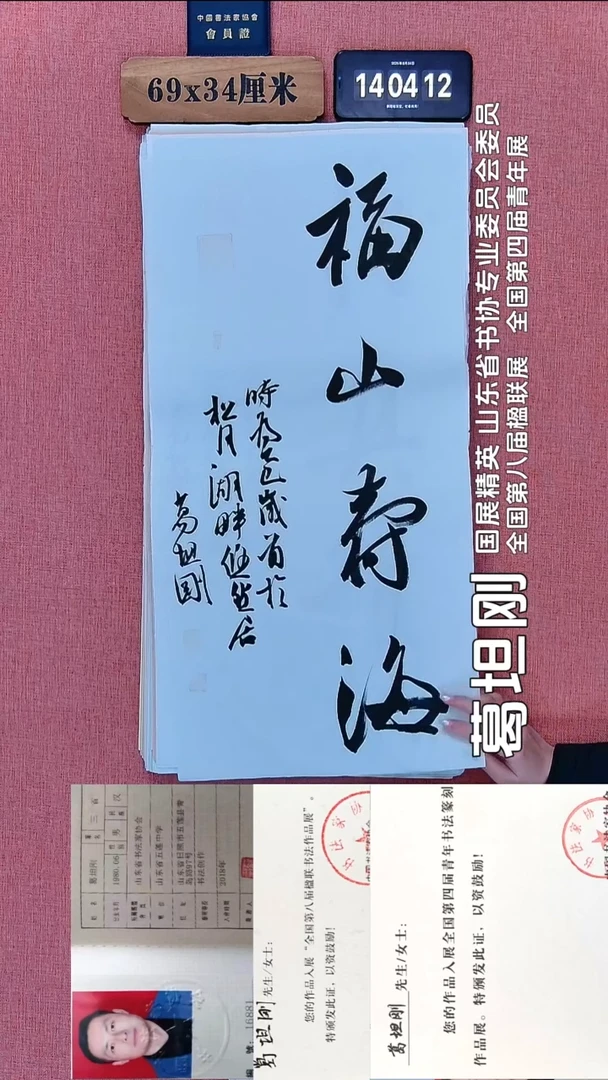 中國書法家協會
會員證
69x34厘米
14 04 12
福山壽海
時為乙巳歲首於
松月湖畔悠然居
葛坦剛
葛坦刚
国展精英 山东省书协专业委员会委员
全国第八届楹联展 全国第四届青年展
葛坦刚
1980.06
男
汉
山东省书法家协会
山东省五莲中学
2018年
編號: 16881
葛坦刚 先生/女士:
您的作品入展“全国第八届楹联书法作品展”。
特颁发此证,以资鼓励!
葛坦刚 先生/女士:
您的作品入展全国第四届青年书法篆刻
作品展。特颁发此证,以资鼓励!